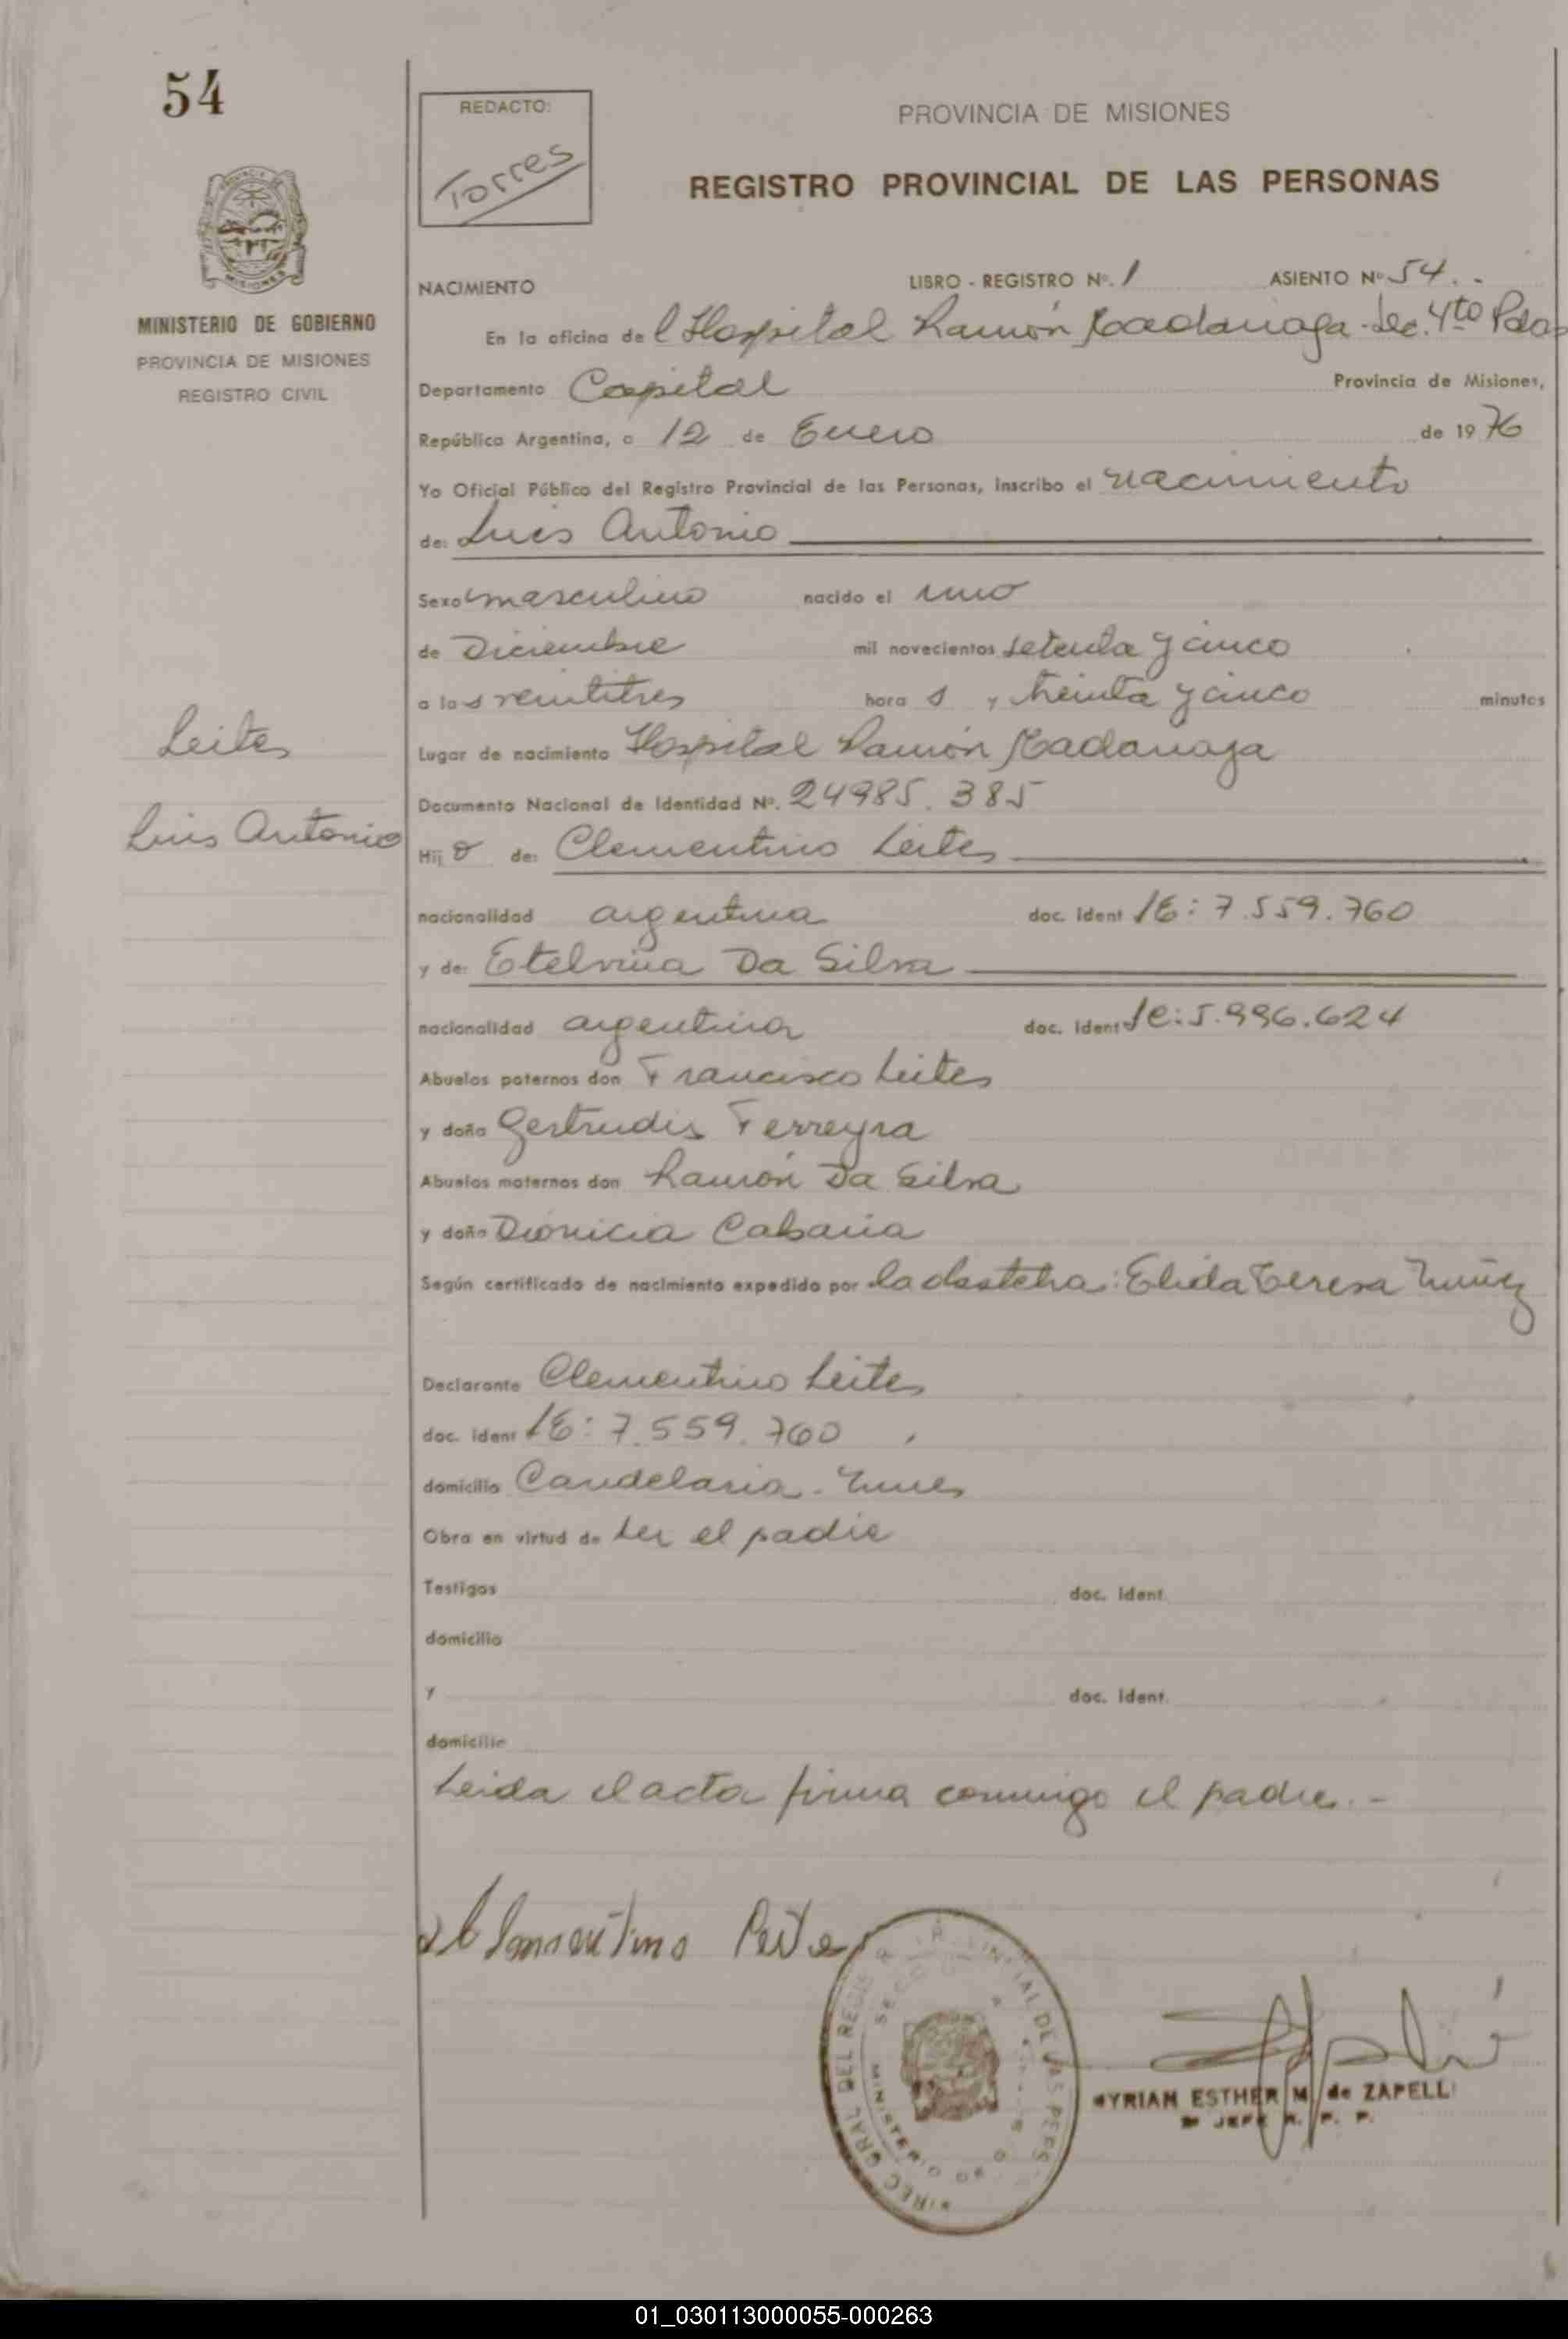 54
REDACTO:
Torres
PROVINCIA DE MISIONES
REGISTRO PROVINCIAL DE LAS PERSONAS
MINISTERIO DE GOBIERNO
PROVINCIA DE MISIONES
REGISTRO CIVIL
NACIMIENTO LIBRO - REGISTRO Nº. 1 ASIENTO Nº 54.-
En la oficina de l Hospital Ramón Madariaga - Sec. 4to Pdas
Departamento Capital Provincia de Misiones,
República Argentina, a 12 de Enero de 1976
Yo Oficial Público del Registro Provincial de las Personas, inscribo el nacimiento
de: Luis Antonio
Sexo masculino nacido el uno
de Diciembre mil novecientos setenta y cinco
a las veintitres hora s y treinta y cinco minutos
Leites
Lugar de nacimiento Hospital Ramón Madariaga
Documento Nacional de Identidad Nº. 24985.385
Luis Antonio
Hij o de: Clementino Leites
nacionalidad argentina doc. ident LE: 7.559.760
y de: Etelvina Da Silva
nacionalidad argentina doc. ident LC: 5.996.624
Abuelos paternos don Francisco Leites
y doña Gertrudis Ferreyra
Abuelos maternos don Ramón Da Silva
y doña Dionicia Cabaña
Según certificado de nacimiento expedido por la obstetra: Elida Teresa Nuñez
Declarante Clementino Leites
doc. ident LE: 7.559.760
domicilio Candelaria - Mnes
Obra en virtud de ser el padre
Testigos doc. ident.
domicilio
y doc. ident.
domicilio
Leida el acta firma conmigo el padre.-
Clementino Leites
MINISTERIO
MYRIAN ESTHER M. de ZAPELLI
JEFE R. P. P.
01_030113000055-000263